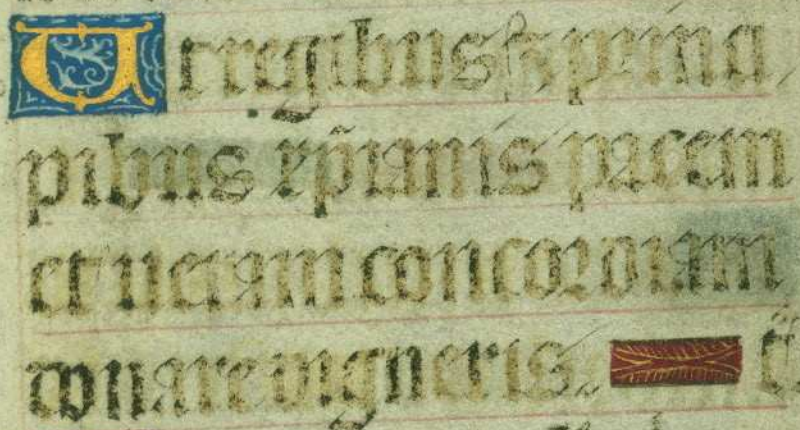 Ut regibus & princi
pibus xp̄ianis pacem
et ueram concordiam
donare digneris.